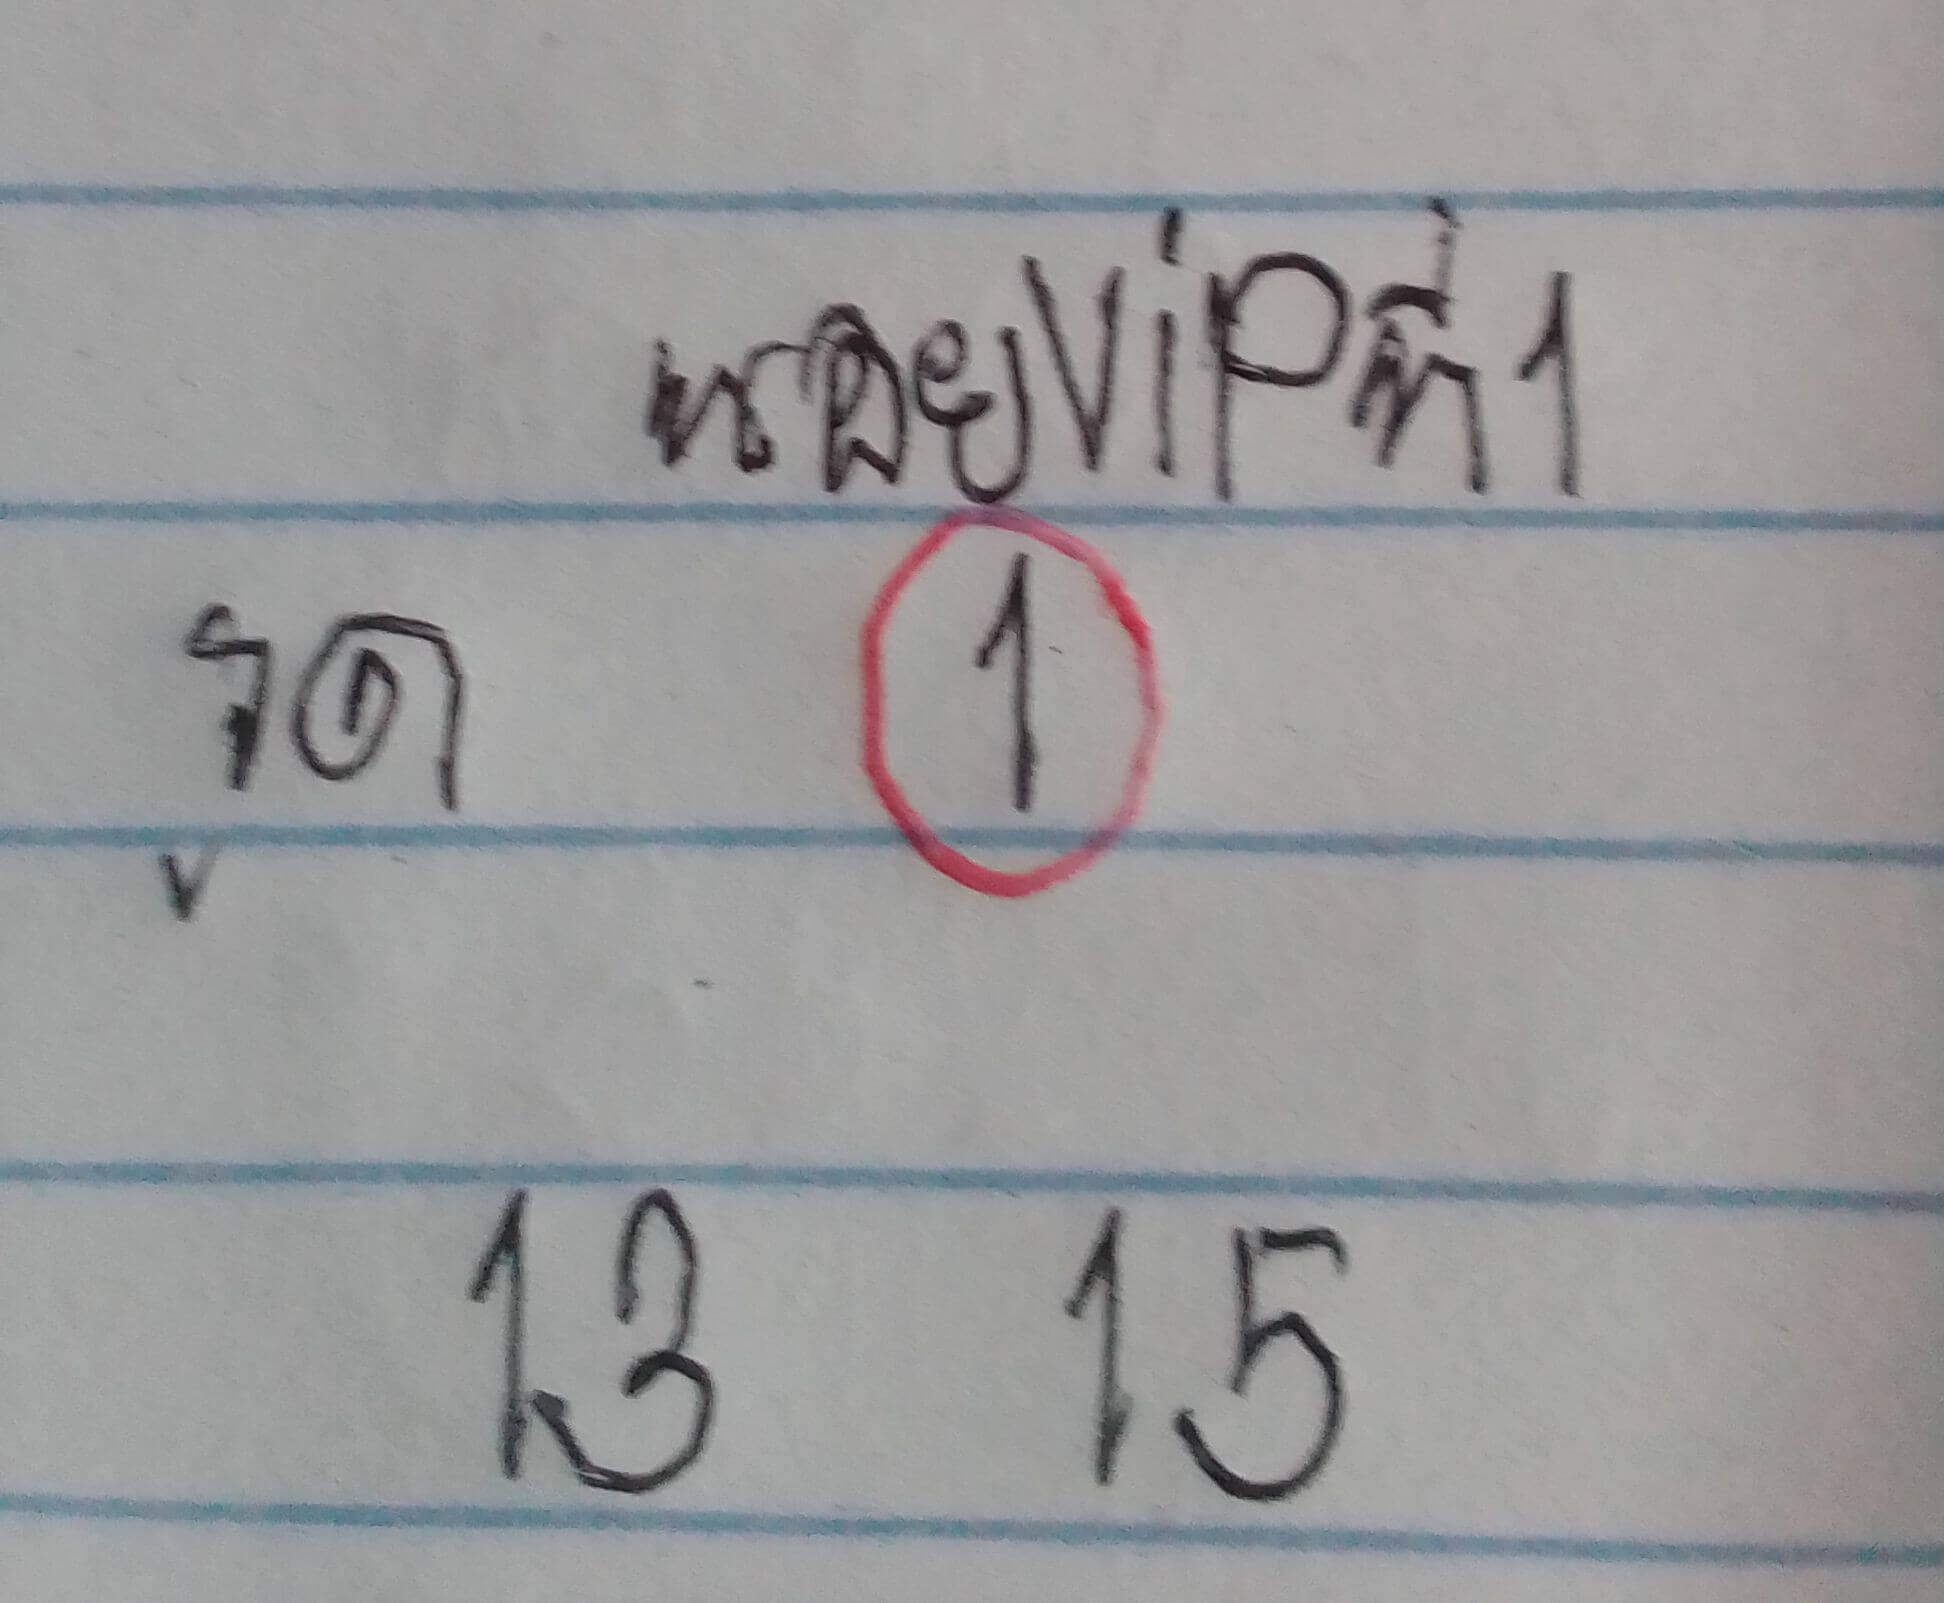 หอยViPที่1
รูด 1
13 15